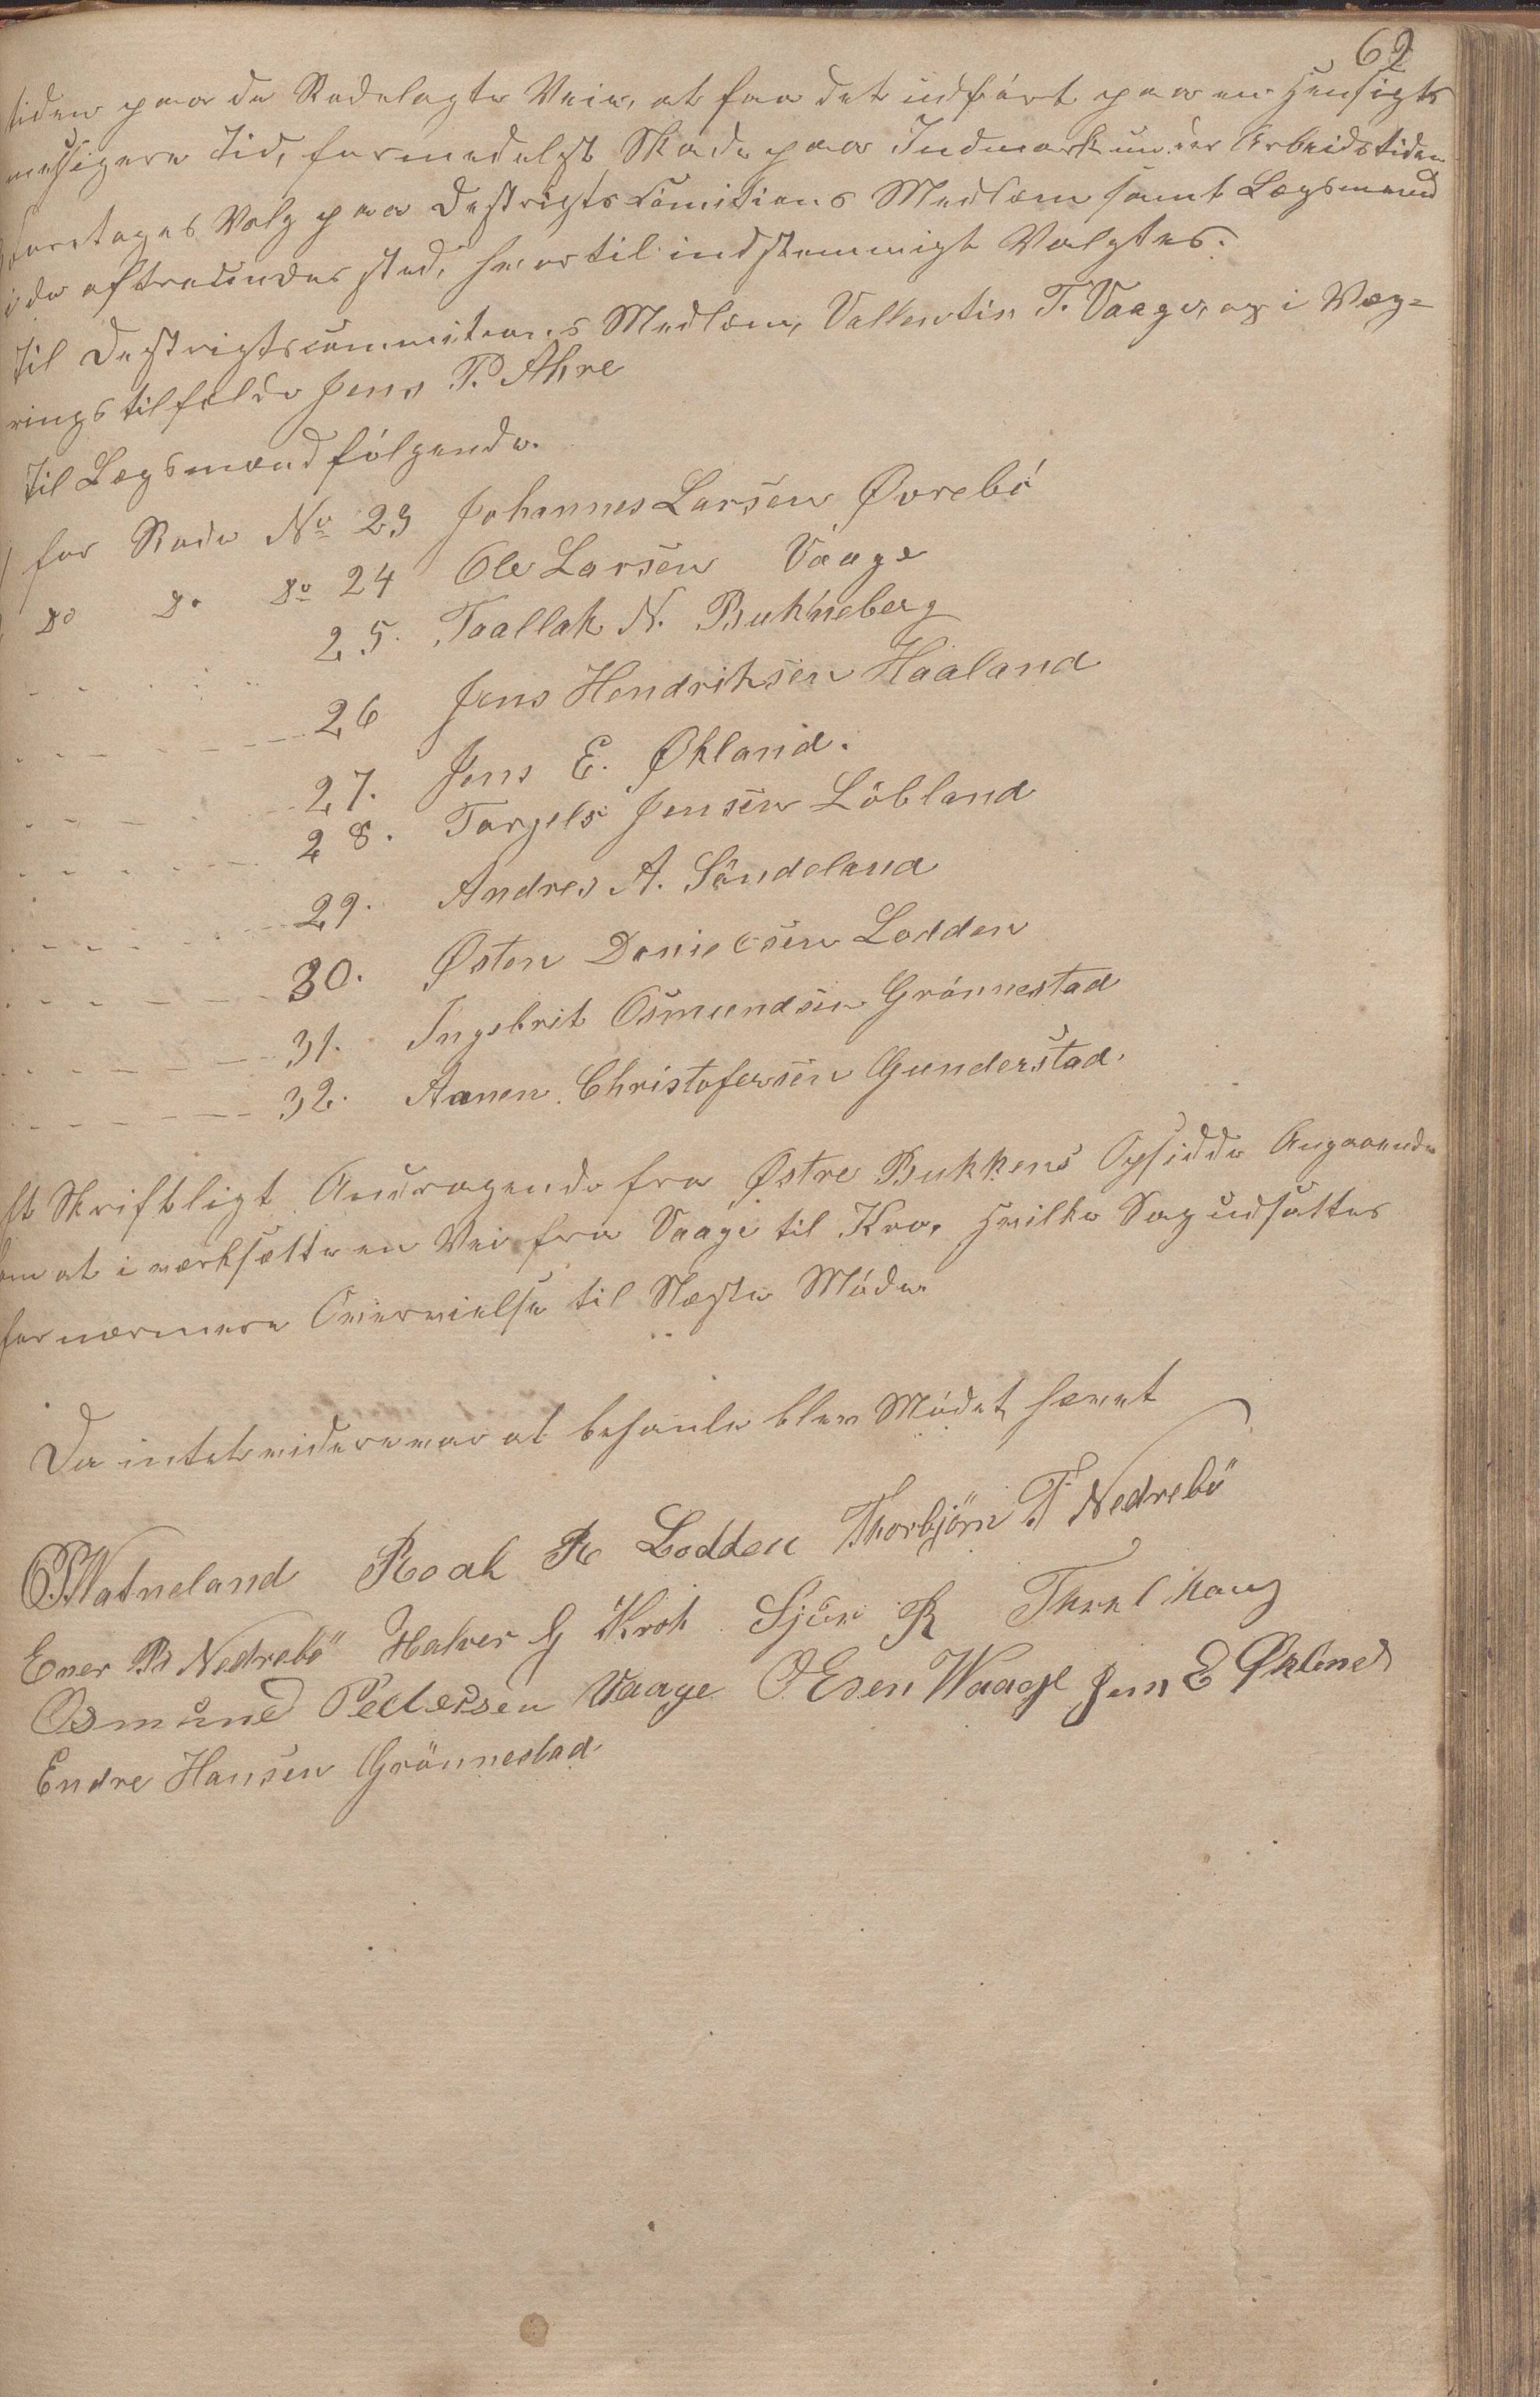 62
tiden paa de Rodelagte Veie, at faa det udført paa en Hensigts
messigere Tid, formedelst Skade paa Indmark under Arbeidstiden
Foretages Valg paa Destrigts Comitions Medlem samt Lægsmænd
i de aftredendes sted, hvortil indstemmigt Valgtes.
Til Destrigtscommitions Medlem, Vallentin T. Vaage, og i Væg=
ringstilfelde Jens P. Ahre
Til Lægsmænd følgende.
for Rode No 23 Johannes Larsen Øvrebö
Do Do Do 24 Ole Larsen Vaage
25. Taallak N. Bukneberg
26 Jens Hendriksen Haaland
27. Jens E. Økland.
28. Torgels Jensen Löbland
29. Andres A. Söndeland
30. Østen Danielsen Lodden
31. Ingebrit Osmundsen Grönnestad
32. Aanen Christofersen Gunderstad.
Et Skriftligt Andragende fra Østre Bukkens Opsidde Angaaende
om at iværksætte en Vei fra Vaage til Kro, hvilke Sag udsattes
for nærmere Overveielse til Næste Møde.
Da intet videre var at behanle blev Mödet hævet
Watneland Roal R Lodden Thorbjörn T Nedrebö
Ener B Nedrebö Halver G Kroh Sjur R
Osmund Pedersen Vaage O Esen Waage Jens E Økland
Endre Hansen Grönnestad